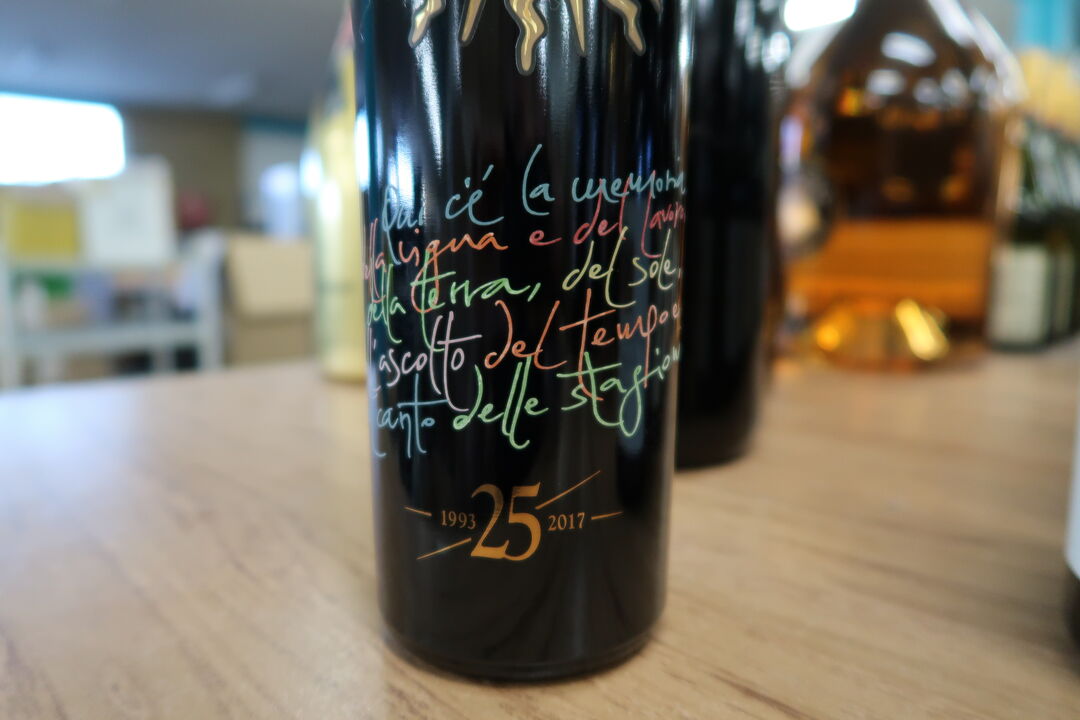 Qui c'è la memoria
della vigna e del lavoro,
della terra, del sole,
l'ascolto del tempo e
canto delle stagioni
1993 25 2017